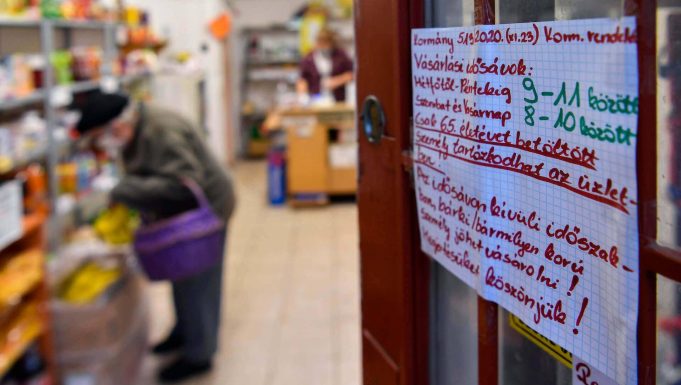 Kormány 513.2020. (XI.23) Korm. rendelet
Vásárlási idősávok:
Hétfőtől-Péntekig 9-11 között
Szombat és Vasárnap 8-10 között
Csak 65. életévet betöltött
személy tartózkodhat az üzlet-
ben.
Az idősávon kívüli időszak-
ban bárki/bármilyen korú
személy jöhet vásárolni!
Megértésüket köszönjük!